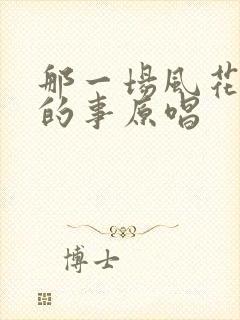 那一場風花
的事原唱
博士